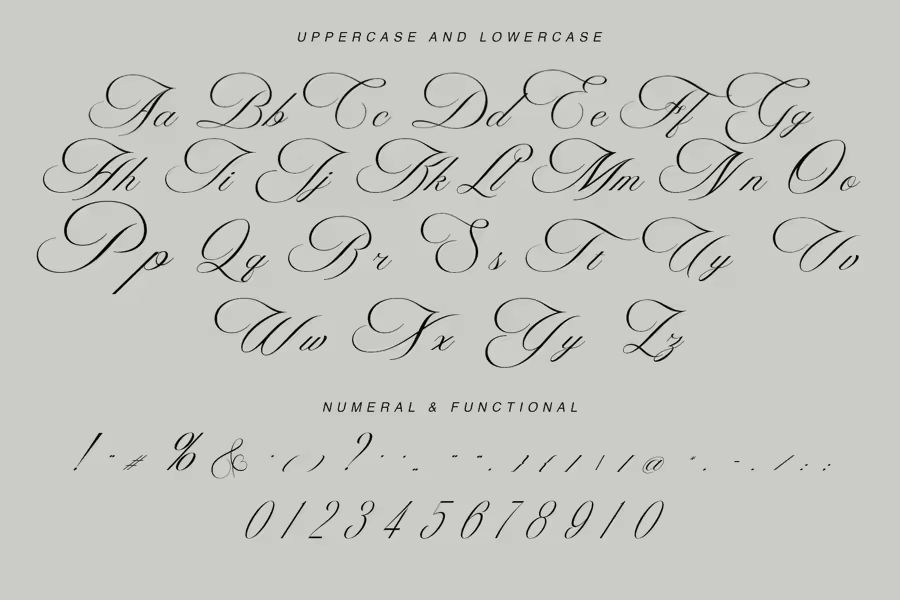 UPPERCASE AND LOWERCASE
Aa Bb Cc Dd Ee Ff Gg
Hh Ii Jj Kk Ll Mm Nn Oo
Pp Qq Rr Ss Tt Uy Vv
Ww Xx Yy Zz
NUMERAL & FUNCTIONAL
! " # % & ' ( ) ?
@
0 1 2 3 4 5 6 7 8 9 1 0